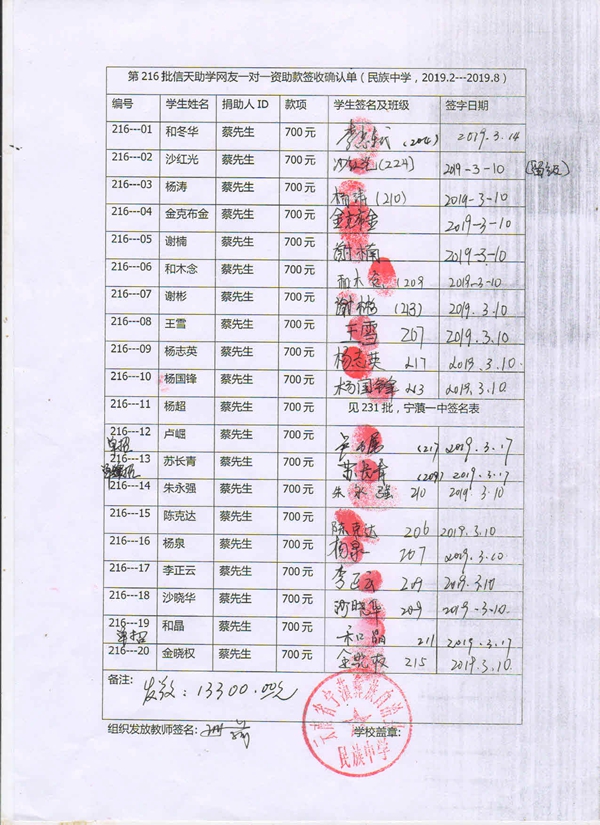 第216批信天助学网友一对一资助款签收确认单（民族中学，2019.2---2019.8）
编号 学生姓名 捐助人ID 款项 学生签名及班级 签字日期
216---01 和冬华 蔡先生 700元 2019.3.14
216---02 沙红光 蔡先生 700元 沙红光(224) 2019-3-10
216---03 杨涛 蔡先生 700元 杨涛(210) 2019-3-10
216---04 金克布金 蔡先生 700元 金克布金 2019-3-10
216---05 谢楠 蔡先生 700元 谢楠 2019-3-10
216---06 和木念 蔡先生 700元 和木念 (209 2019-3-10
216---07 谢彬 蔡先生 700元 谢彬 (213) 2019.3.10
216---08 王雪 蔡先生 700元 王雪 207 2019.3.10
216---09 杨志英 蔡先生 700元 杨志英 217 2019.3.10
216---10 杨国锋 蔡先生 700元 杨国锋 213 2019.3.10
216---11 杨超 蔡先生 700元 见231批，宁蒗一中签名表
216---12 卢崛 蔡先生 700元 (217) 2019.3.17
单招
216---13 苏长青 蔡先生 700元 苏长青 (209) 2019.3.17
216---14 朱永强 蔡先生 700元 朱永强 210 2019.3.10
216---15 陈克达 蔡先生 700元 陈克达 206 2019.3.10
216---16 杨泉 蔡先生 700元 杨泉 207 2019.3.10
216---17 李正云 蔡先生 700元 李正云 209 2019.3.10
216---18 沙晓华 蔡先生 700元 沙晓华 209 2019-3-10
216---19 和晶 蔡先生 700元 和晶 211 2019.3.17
单招
216---20 金晓权 蔡先生 700元 金晓权 215 2019.3.10
备注：
发放：13300.00元
组织发放教师签名： 学校盖章：
云南省宁蒗彝族自治县
民族中学